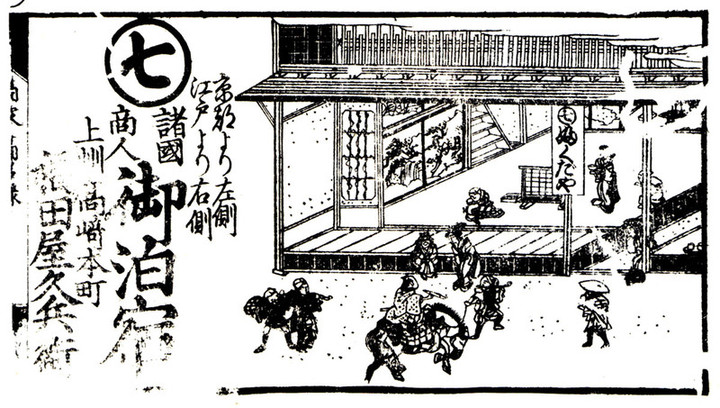 京都より左側
江戸より右側
七
諸國
商人
御泊宿
上州高崎本町
田屋久兵衛